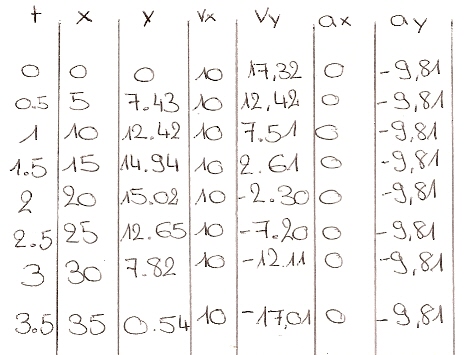 t x y vx vy ax ay
0 0 0 10 17,32 0 -9,81
0.5 5 7.43 10 12,42 0 -9,81
1 10 12.42 10 7.51 0 -9,81
1.5 15 14.94 10 2.61 0 -9,81
2 20 15.02 10 -2.30 0 -9,81
2.5 25 12.65 10 -7.20 0 -9,81
3 30 7.82 10 -12.11 0 -9,81
3.5 35 0.54 10 -17,01 0 -9,81